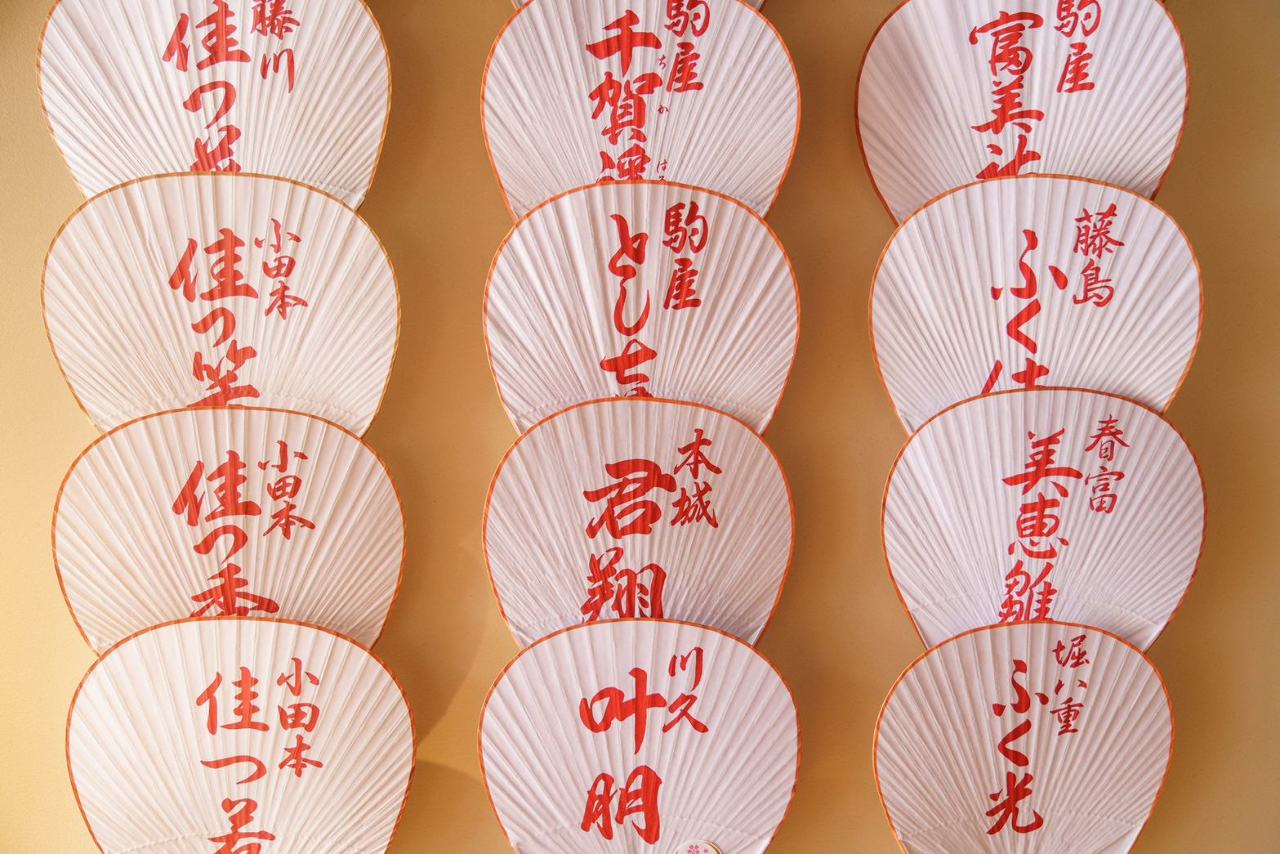 藤川
佳つ
小田本
佳つ笑
小田本
佳つ香
小田本
佳つ若
駒屋
千賀遥
ちかはる
駒屋
とし吉
本城
君翔
川久
叶明
駒屋
富美
藤島
ふく
春富
美恵雛
堀八重
ふく光